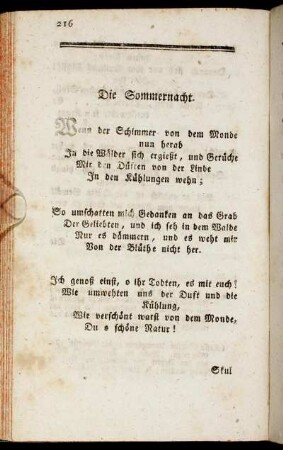 216
Die Sommernacht.
Wenn der Schimmer von dem Monde
nun herab
In die Wälder sich ergießt, und Gerüche
Mit den Düften von der Linde
In den Kühlungen wehn;
So umschatten mich Gedanken an das Grab
Der Geliebten, und ich seh in dem Walde
Nur es dämmern, und es weht mir
Von der Blüthe nicht her.
Ich genoß einst, o ihr Todten, es mit euch!
Wie umwehten uns der Duft und die
Kühlung,
Wie verschönt warst von dem Monde,
Du o schöne Natur!
Skul